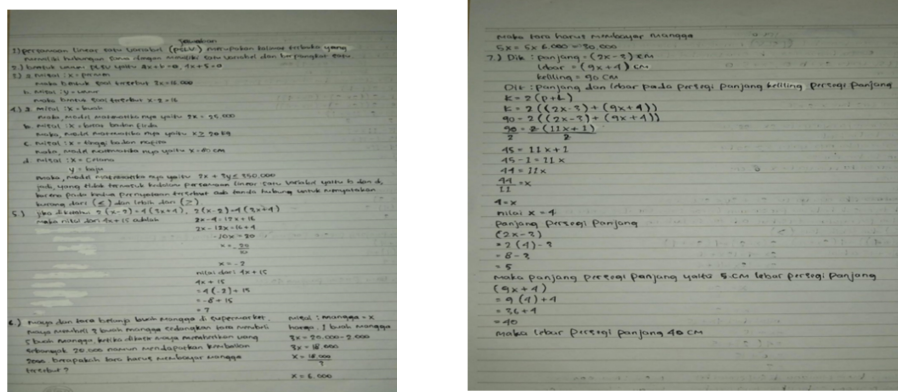 Jawaban
1.) persamaan linear satu variabel (PLSV) merupakan kalimat terbuka yang
memiliki hubungan sama dengan memiliki satu variabel dan berpangkat satu
2.) bentuk umum PLSV yaitu
3.) a. misal : x = permen
maka bentuk dari tersebut 3x = 16.000
b. misal : y = umur
maka bentuk dari tersebut x - 3 = 16
4.) a. misal : x = buah
maka, model matematika nya yaitu = 25.000
b. misal : x = berat badan
maka, model matematika nya yaitu x ≥ 20 kg
c. misal : x = tinggi badan
maka, model matematika nya yaitu cm
d. misal : x = celana
y = baju
maka, model matematika nya yaitu 2x + 3y ≤ 350.000
jadi, yang tidak termasuk kedalam persamaan linear satu variabel yaitu b dan d,
karena pada kedua pernyataan tersebut ada tanda hubung untuk menyatakan
kurang dari (≤) dan lebih dari (≥)
5.) jika diketahui 2(x-2) = 4(3x+4)
maka nilai dari 4x + 15 adalah
2x - 4 = 12x + 16
2x - 12x = 16 + 4
-10x = 20
x = -2
nilai dari 4x + 15
4x + 15
= 4(-2) + 15
= -8 + 15
= 7
6.) maya dan tara belanja buah mangga di supermarket.
maya membeli 3 buah mangga sedangkan tara membeli
5 buah mangga, ketika diketahui maya menyerahkan uang
sebanyak 20.000 namun mendapatkan kembalian
2000 berapakah tara harus membayar mangga
tersebut ?
misal : mangga = x
harga, 1 buah mangga
3x = 20.000 - 2.000
3x = 18.000
x = 18.000
3
x = 6.000
maka tara harus membayar mangga
5x = 5 x 6.000 = 30.000
7.) Dik : panjang = (2x - 3) cm
lebar = (9x + 4) cm
keliling = 90 cm
Dit : panjang dan lebar pada persegi panjang keliling persegi panjang
K = 2(p + L)
K = 2((2x - 3) + (9x + 4))
90 = 2((2x - 3) + (9x + 4))
90 = 2 (11x + 1)
2 2
45 = 11x + 1
45 - 1 = 11x
44 = 11x
44 = x
11
4 = x
nilai x = 4
panjang persegi panjang
(2x - 3)
= 2 (4) - 3
= 8 - 3
= 5
maka panjang persegi panjang yaitu 5 cm lebar persegi panjang
(9x + 4)
= 9 (4) + 4
= 36 + 4
= 40
maka lebar persegi panjang 40 cm